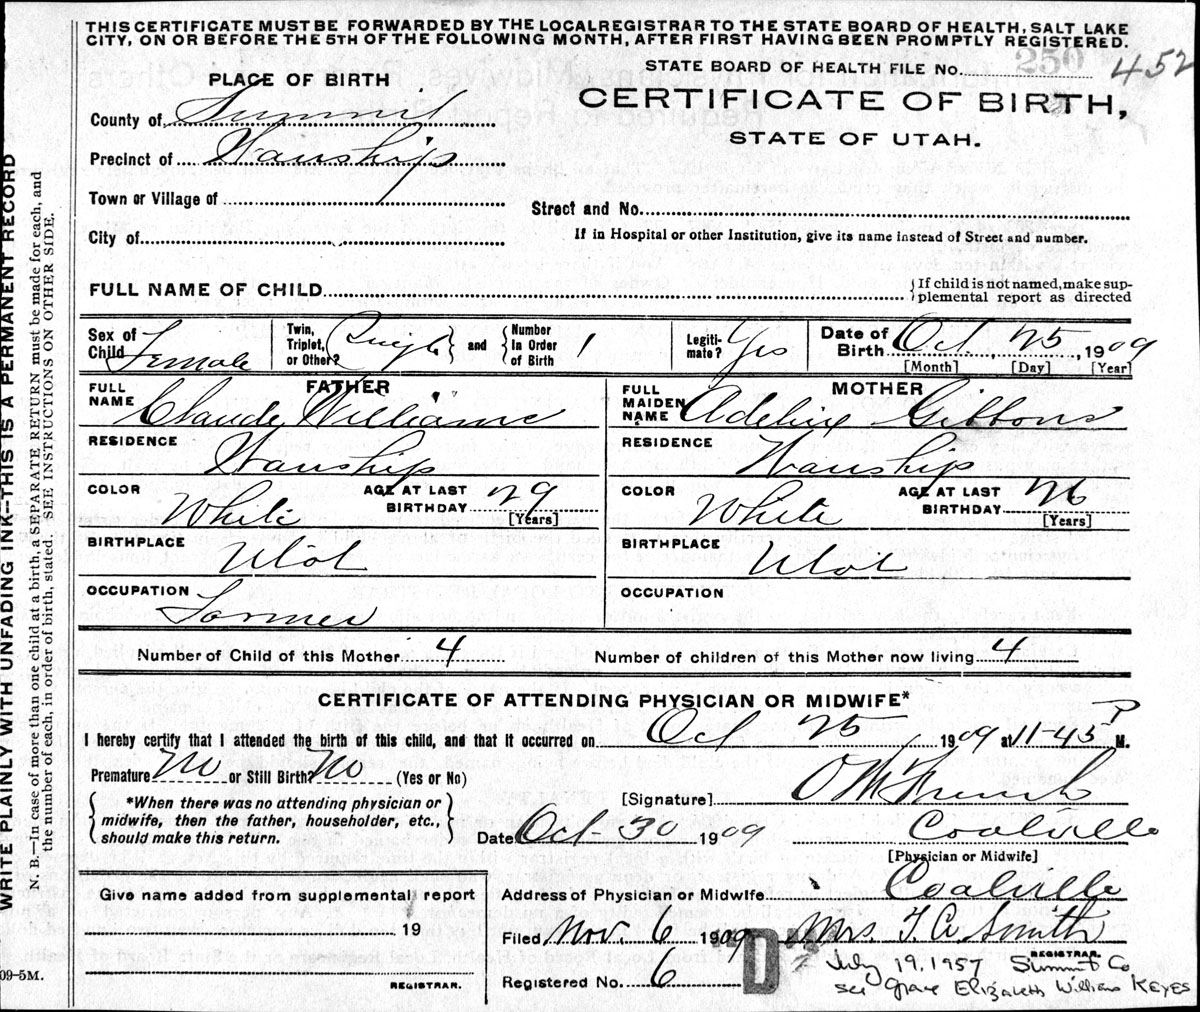 THIS CERTIFICATE MUST BE FORWARDED BY THE LOCALREGISTRAR TO THE STATE BOARD OF HEALTH, SALT LAKE
CITY, ON OR BEFORE THE 5TH OF THE FOLLOWING MONTH, AFTER FIRST HAVING BEEN PROMPTLY REGISTERED.
STATE BOARD OF HEALTH FILE NO. 250 452
PLACE OF BIRTH
CERTIFICATE OF BIRTH,
STATE OF UTAH.
County of Summit
Precinct of Wanship
Town or Village of
Street and No.
City of
If in Hospital or other Institution, give its name instead of Street and number.
FULL NAME OF CHILD { If child is not named, make sup-
plemental report as directed
Sex of Child Female
Twin, Triplet, or Other? Single } and { Number In Order of Birth 1
Legiti-mate? Yes
Date of Birth Oct 25, 1909
[Month] [Day] [Year]
FATHER
FULL NAME Claude Williams
MOTHER
FULL MAIDEN NAME Adeline Gibbons
RESIDENCE Wanship
RESIDENCE Wanship
COLOR White AGE AT LAST BIRTHDAY 29 [Years]
COLOR White AGE AT LAST BIRTHDAY 26 [Years]
BIRTHPLACE Utah
BIRTHPLACE Utah
OCCUPATION Farmer
OCCUPATION
Number of Child of this Mother 4 Number of children of this Mother now living 4
CERTIFICATE OF ATTENDING PHYSICIAN OR MIDWIFE*
I hereby certify that I attended the birth of this child, and that it occurred on Oct 25 1909 at 11-45 P M.
Premature No or Still Birth? No (Yes or No)
*When there was no attending physician or
midwife, then the father, householder, etc.,
should make this return.
[Signature]
Date Oct-30 1909 Coalville
[Physician or Midwife]
Give name added from supplemental report
19
REGISTRAR.
Address of Physician or Midwife Coalville
Filed Nov. 6 1909 Mrs. T. A. Smith
REGISTRAR.
Registered No. 6
D
July 19, 1957 Summit Co,
see Grace Elizabeth Williams KEYES
WRITE PLAINLY WITH UNFADING INK—THIS IS A PERMANENT RECORD
N. B.—In case of more than one child at a birth, a SEPARATE RETURN must be made for each, and
the number of each, in order of birth, stated. SEE INSTRUCTIONS ON OTHER SIDE.
09-5M.